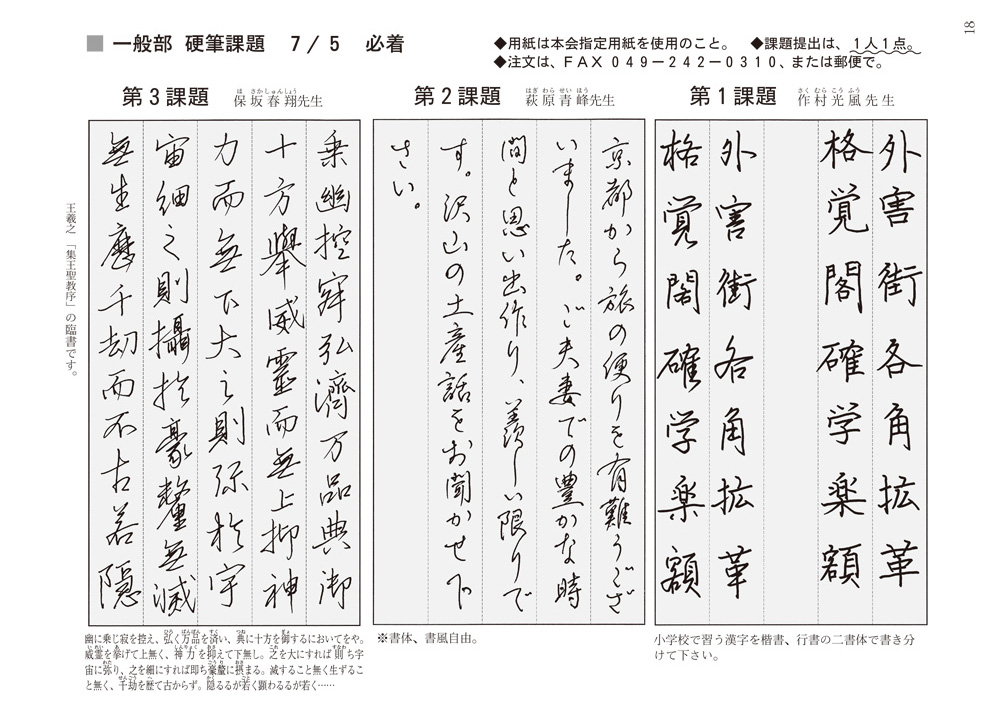 18
■ 一般部 硬筆課題 7/5 必着
◆用紙は本会指定用紙を使用のこと。 ◆課題提出は、1人1点。
◆注文は、FAX 049－242－0310、または郵便で。
第1課題 作村光風先生
さくむらこうふう
外害街各角拡革
格覚閣確学楽額
外害街各角拡革
格覚閣確学楽額
小学校で習う漢字を楷書、行書の二書体で書き分
けて下さい。
第2課題 萩原青峰先生
はぎわらせいほう
京都から旅の便りを有難うござ
いました。ご夫妻での豊かな時
間と思い出作り、羨しい限りで
す。沢山の土産話をお聞かせ下
さい。
※書体、書風自由。
第3課題 保坂春翔先生
ほさかしゅんしょう
乗幽控寂弘濟万品典御
十方舉威靈而無上抑神
力而無下大之則弥於宇
宙細之則攝於豪釐無滅
無生歴千劫而不古若隠
王羲之「集王聖教序」の臨書です。
幽に乗じ寂を控え、弘く万品を済い、典に十方を御するにおいてをや。
威霊を挙げて上無く、神力を抑えて下無し。之を大にすれば則ち宇
宙に弥り、之を細にすれば即ち豪釐に摂まる。滅すること無く生ずるこ
と無く、千劫を歴て古からず。隠るるが若く顕わるるが若く……